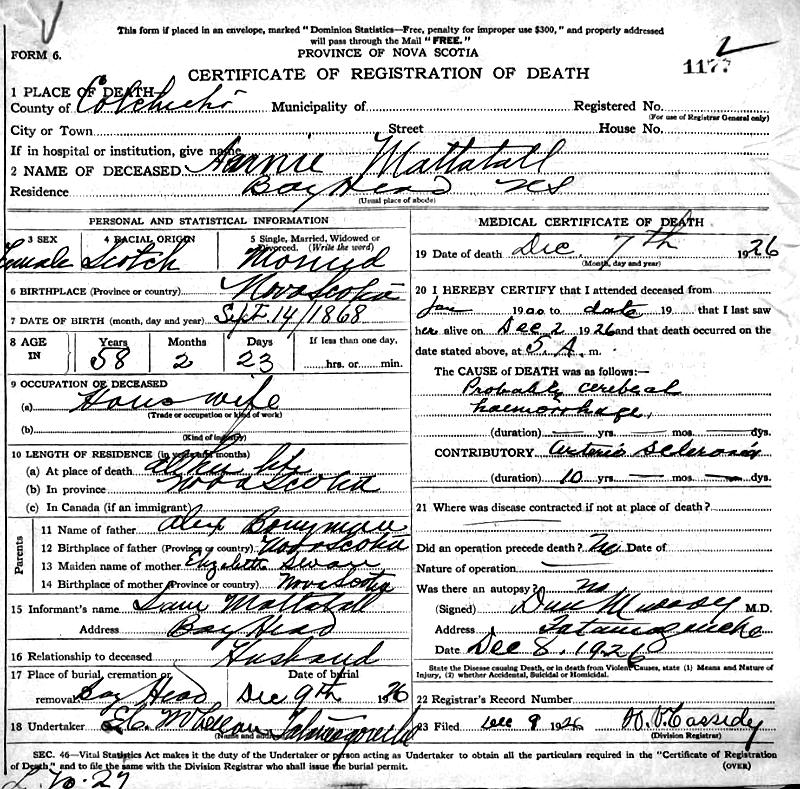 This form if placed in an envelope, marked "Dominion Statistics—Free, penalty for improper use $300," and properly addressed
will pass through the Mail "FREE."
FORM 6.
PROVINCE OF NOVA SCOTIA
2
CERTIFICATE OF REGISTRATION OF DEATH
1177
1 PLACE OF DEATH—
County of Colchester Municipality of Registered No.
(For use of Registrar General only)
City or Town Street House No.
If in hospital or institution, give name
2 NAME OF DECEASED Annie Mattatall
Residence Bay Head NS
(Usual place of abode)
PERSONAL AND STATISTICAL INFORMATION
3 SEX 4 RACIAL ORIGIN 5 Single, Married, Widowed or
Divorced. (Write the word)
Female Scotch Married
6 BIRTHPLACE (Province or country) Nova Scotia
7 DATE OF BIRTH (month, day and year) Sept. 14/1868
8 AGE IN Years Months Days If less than one day,
58 2 23 hrs. or min.
9 OCCUPATION OF DECEASED
(a) Housewife
(Trade or occupation or kind of work)
(b)
(Kind of industry)
10 LENGTH OF RESIDENCE (in years and months)
(a) At place of death
(b) In province Nova Scotia
(c) In Canada (if an immigrant)
Parents
11 Name of father Alex
12 Birthplace of father (Province or country) Nova Scotia
13 Maiden name of mother Elizabeth Swan
14 Birthplace of mother (Province or country) Nova Scotia
15 Informant's name Mattatall
Address Bay Head
16 Relationship to deceased Husband
17 Place of burial, cremation or Date of burial
removal Bay Head Dec 9th 1926
18 Undertaker Tatamagouche
(Name and address)
MEDICAL CERTIFICATE OF DEATH
19 Date of death Dec. 7th 1926
(Month, day and year)
20 I HEREBY CERTIFY that I attended deceased from
Jan 1900 to date 19 that I last saw
her alive on Dec 2 1926 and that death occurred on
date stated above, at 5 A. m.
The CAUSE of DEATH was as follows:—
Probably cerebral
haemorrhage.
(duration) — yrs. — mos. — dys.
CONTRIBUTORY arterio sclerosis
(duration) 10 yrs. — mos. — dys.
21 Where was disease contracted if not at place of death?
Did an operation precede death? No Date of
Nature of operation
Was there an autopsy? no
(Signed) Dan Murray M.D.
Address Tatamagouche
Date Dec 8. 1926
State the Disease causing Death, or in death from Violent Causes, state (1) Means and Nature of
Injury, (2) whether Accidental, Suicidal or Homicidal.
22 Registrar's Record Number
23 Filed Dec 9 1926 Cassidy
(Division Registrar)
SEC. 46—Vital Statistics Act makes it the duty of the Undertaker or person acting as Undertaker to obtain all the particulars required in the "Certificate of Registration
of Death," and to file the same with the Division Registrar who shall issue the burial permit. (OVER)